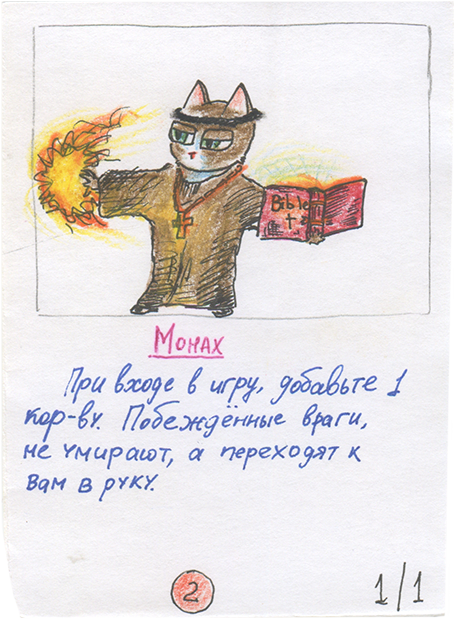 Bible
Монах
При входе в игру, добавьте 1
кор-ву. Побеждённые враги,
не умирают, а переходят к
вам в руку.
2
1/1